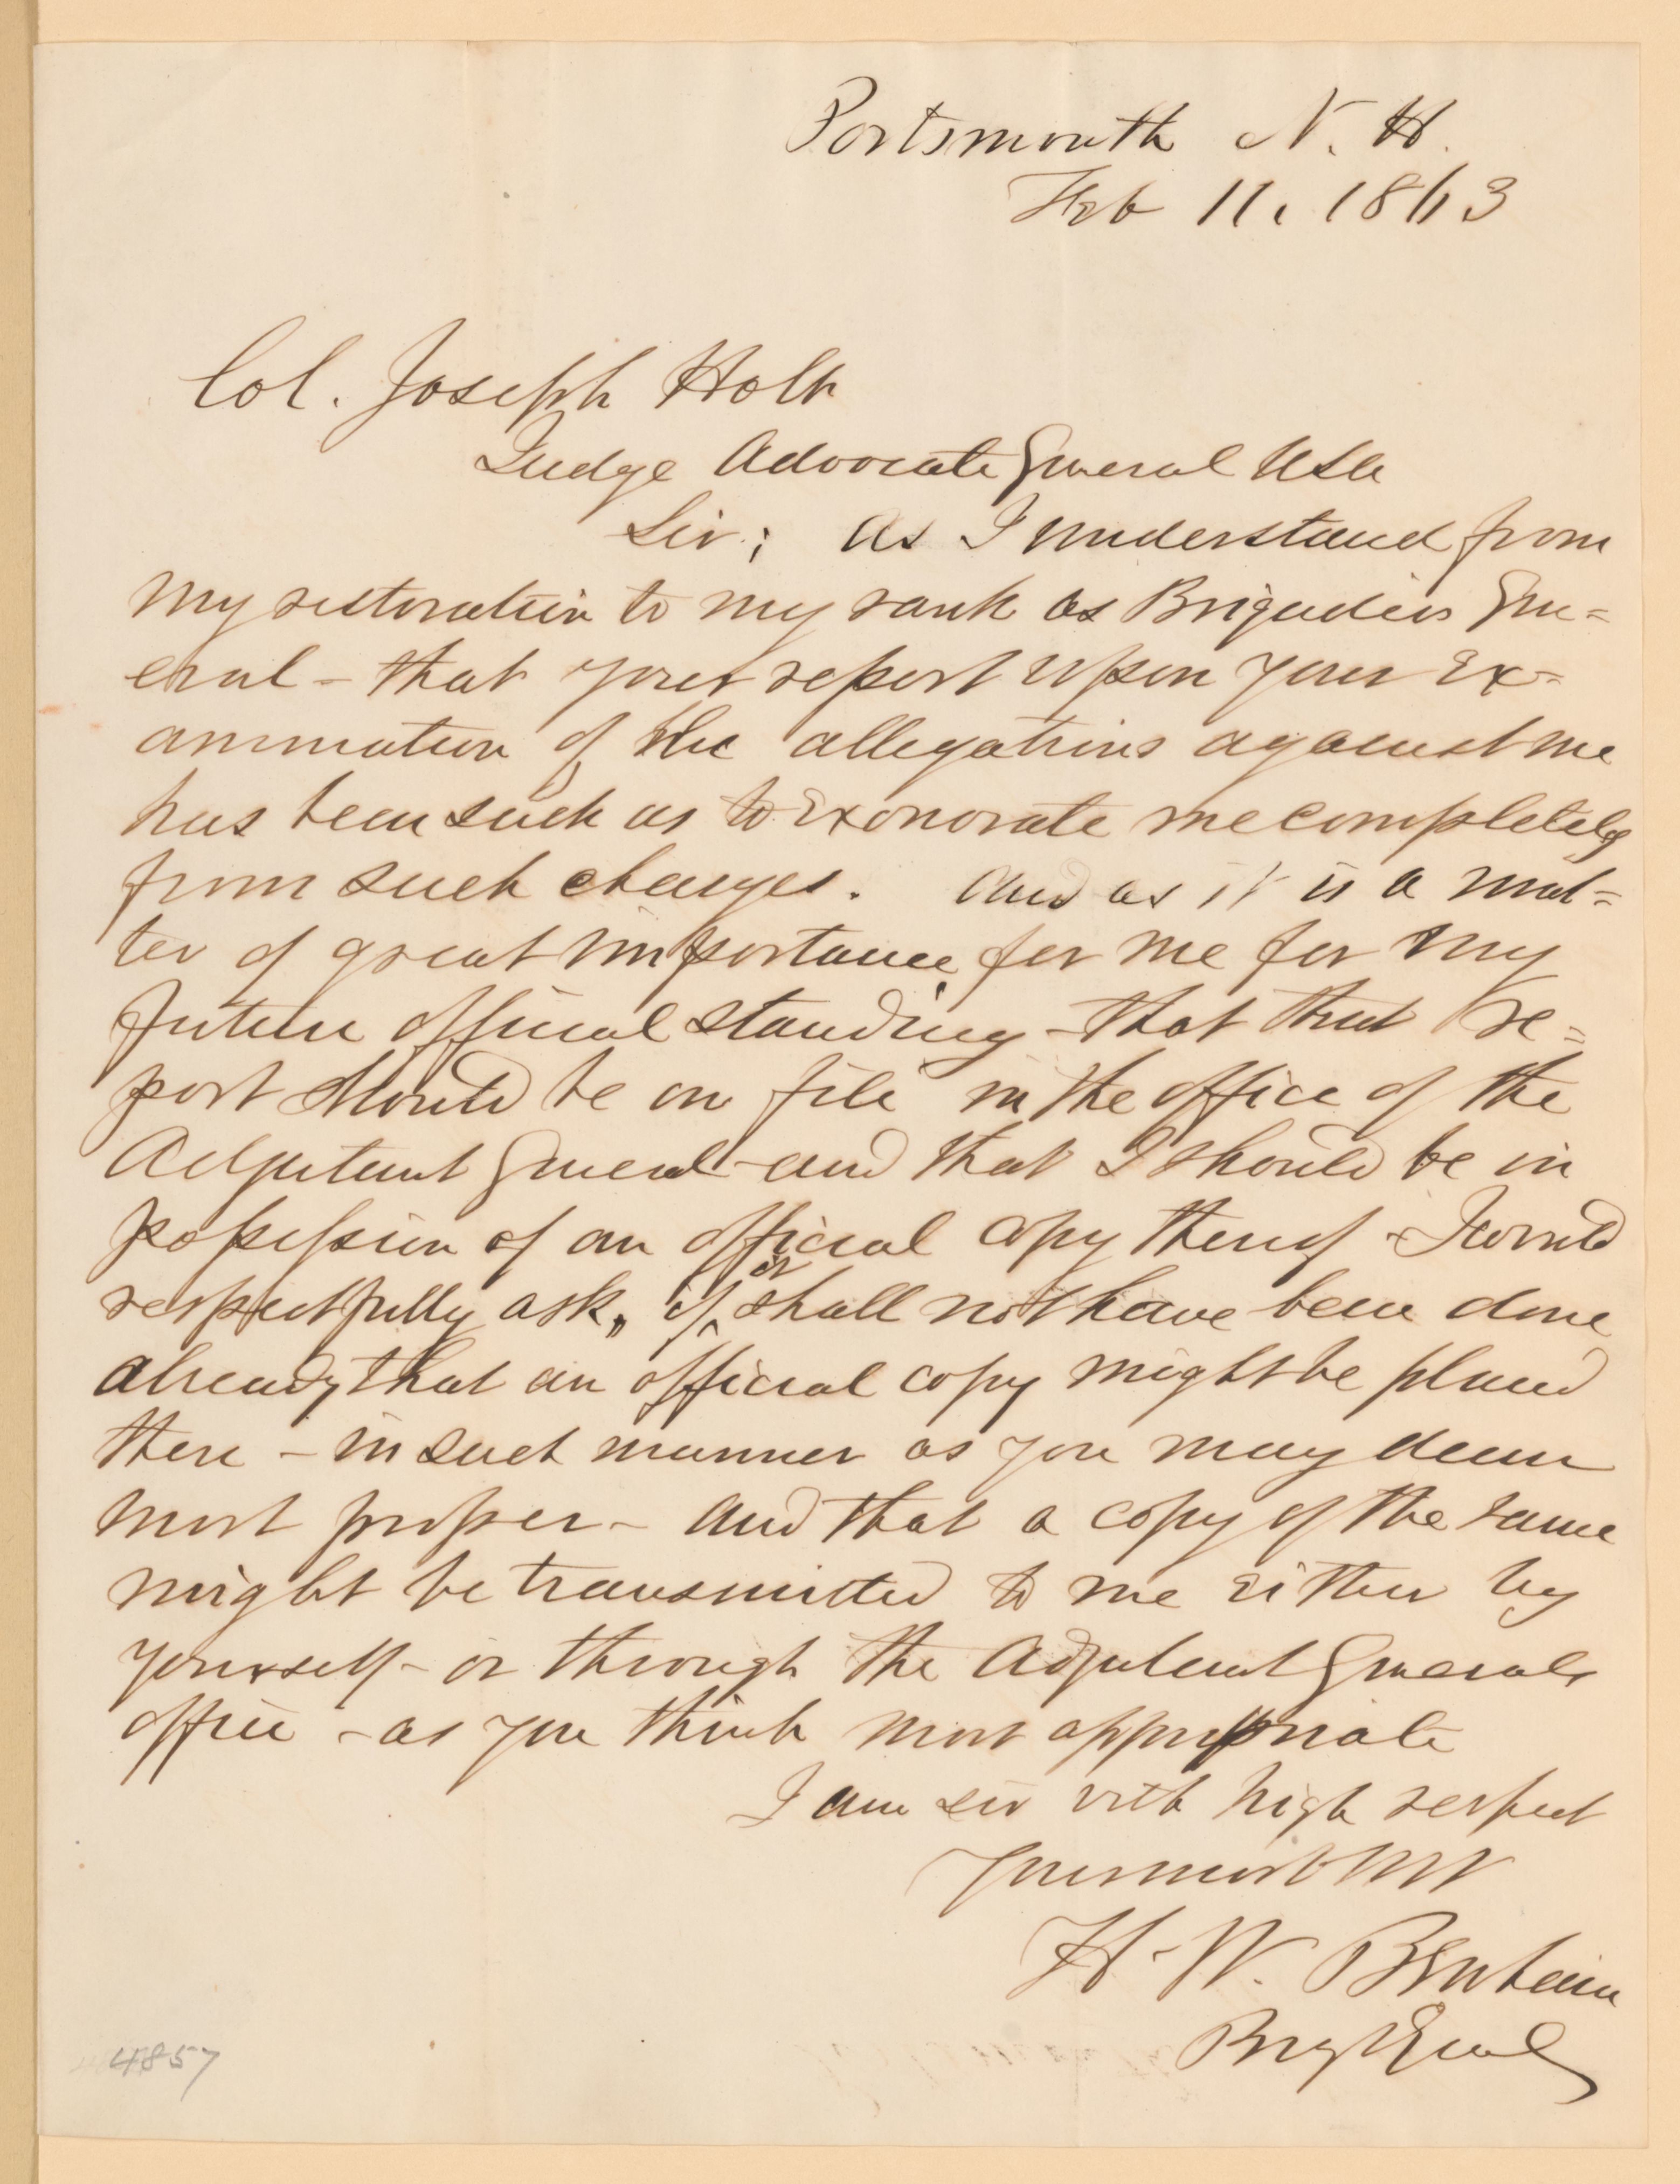 Portsmouth N. H.
Feb 11. 1863
Col. Joseph Holt
Judge Advocate General USA
Sir; As I understand from
my restoration to my rank as Brigadier Gen=
eral – that your report upon your ex=
amination of the allegations against me
has been such as to exonorate me completely
from such charges. And as it is a mat=
ter of great importance for me for my
future official standing – that that re=
port should be on file in the office of the
Adjutant General – and that I should be in
possession of an official copy thereof – I would
respectfully ask, if it shall not have been done
already that an official copy might be placed
there – in such manner as you may deem
most proper – and that a copy of the same
might be transmitted to me either by
yourself – or through the Adjutant Generals
office – as you think most appropriate
I am sir with high respect
Your most
H. W. Benham
Brig Genl
4857